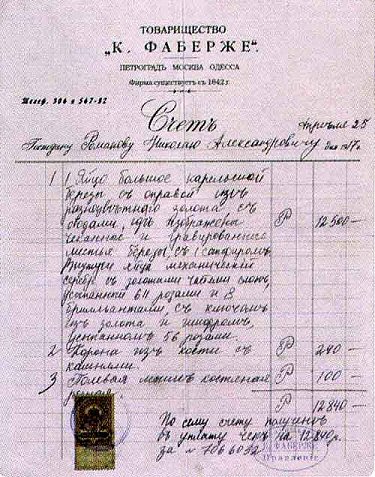 ТОВАРИЩЕСТВО
„К. ФАБЕРЖЕ“.
ПЕТРОГРАДЪ МОСКВА ОДЕССА
Фирма существуетъ съ 1842 г.
Телеф. 306 и 567-92
Счетъ
Апреля 25
Господину Романову Николаю Александровичу дня 1917 г.
1 1 Яйцо большое карельской
березы съ оправой изъ
разноцветного золота съ
сводами, где изображены
чеканное и гравированные
листья березы, съ 1 сапфиромъ, Р 12500 —
внутри яйца механический
серебр. с золотыми чатями слонъ,
усыпанный 61 розами и 8
бриллиантами, съ ключомъ
изъ золота и шифромъ,
усыпанномъ 56 розами.
2 Корона изъ кости съ Р 240 —
камнями
3 Полевая костеная Р 100 —
Р 12840 —
По сему счету получено
въ уплату чекъ на 12840 р.
за № 7066092
ФАБЕРЖЕ
Правленіе